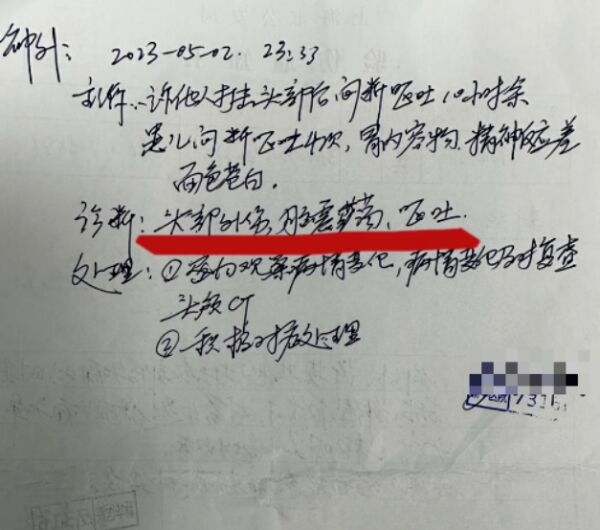 神外: 2023-05-02. 23:33
主诉: 诉他人打击头部后间断呕吐10小时余
患儿间断呕吐4次, 胃内容物. 精神反应差
面色苍白.
诊断: 头部外伤, 脑震荡, 呕吐.
处理: ①密切观察病情变化, 病情变化及时复查
头颅CT
②积极对症处理